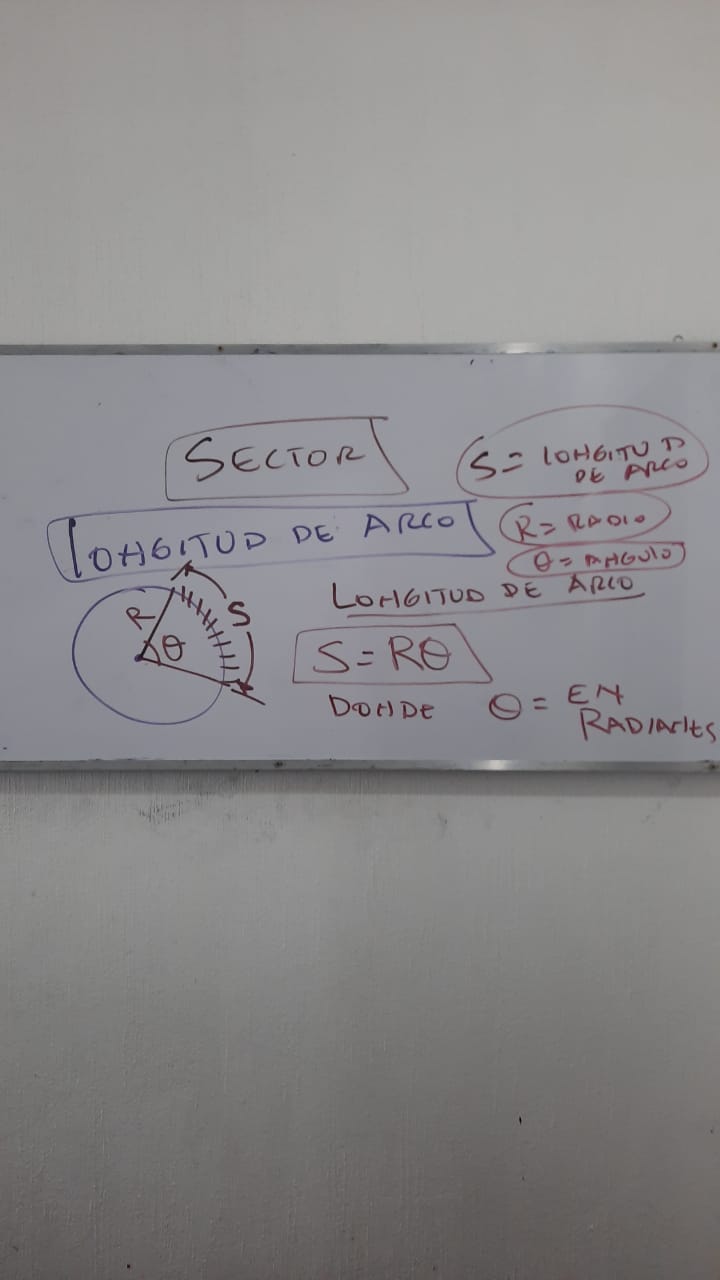 SECTOR
S = LONGITUD
DE ARCO
LONGITUD DE ARCO
R = RADIO
θ = ANGULO
LONGITUD DE ARCO
R
θ
S
S = Rθ
DONDE
θ = EN
RADIANES